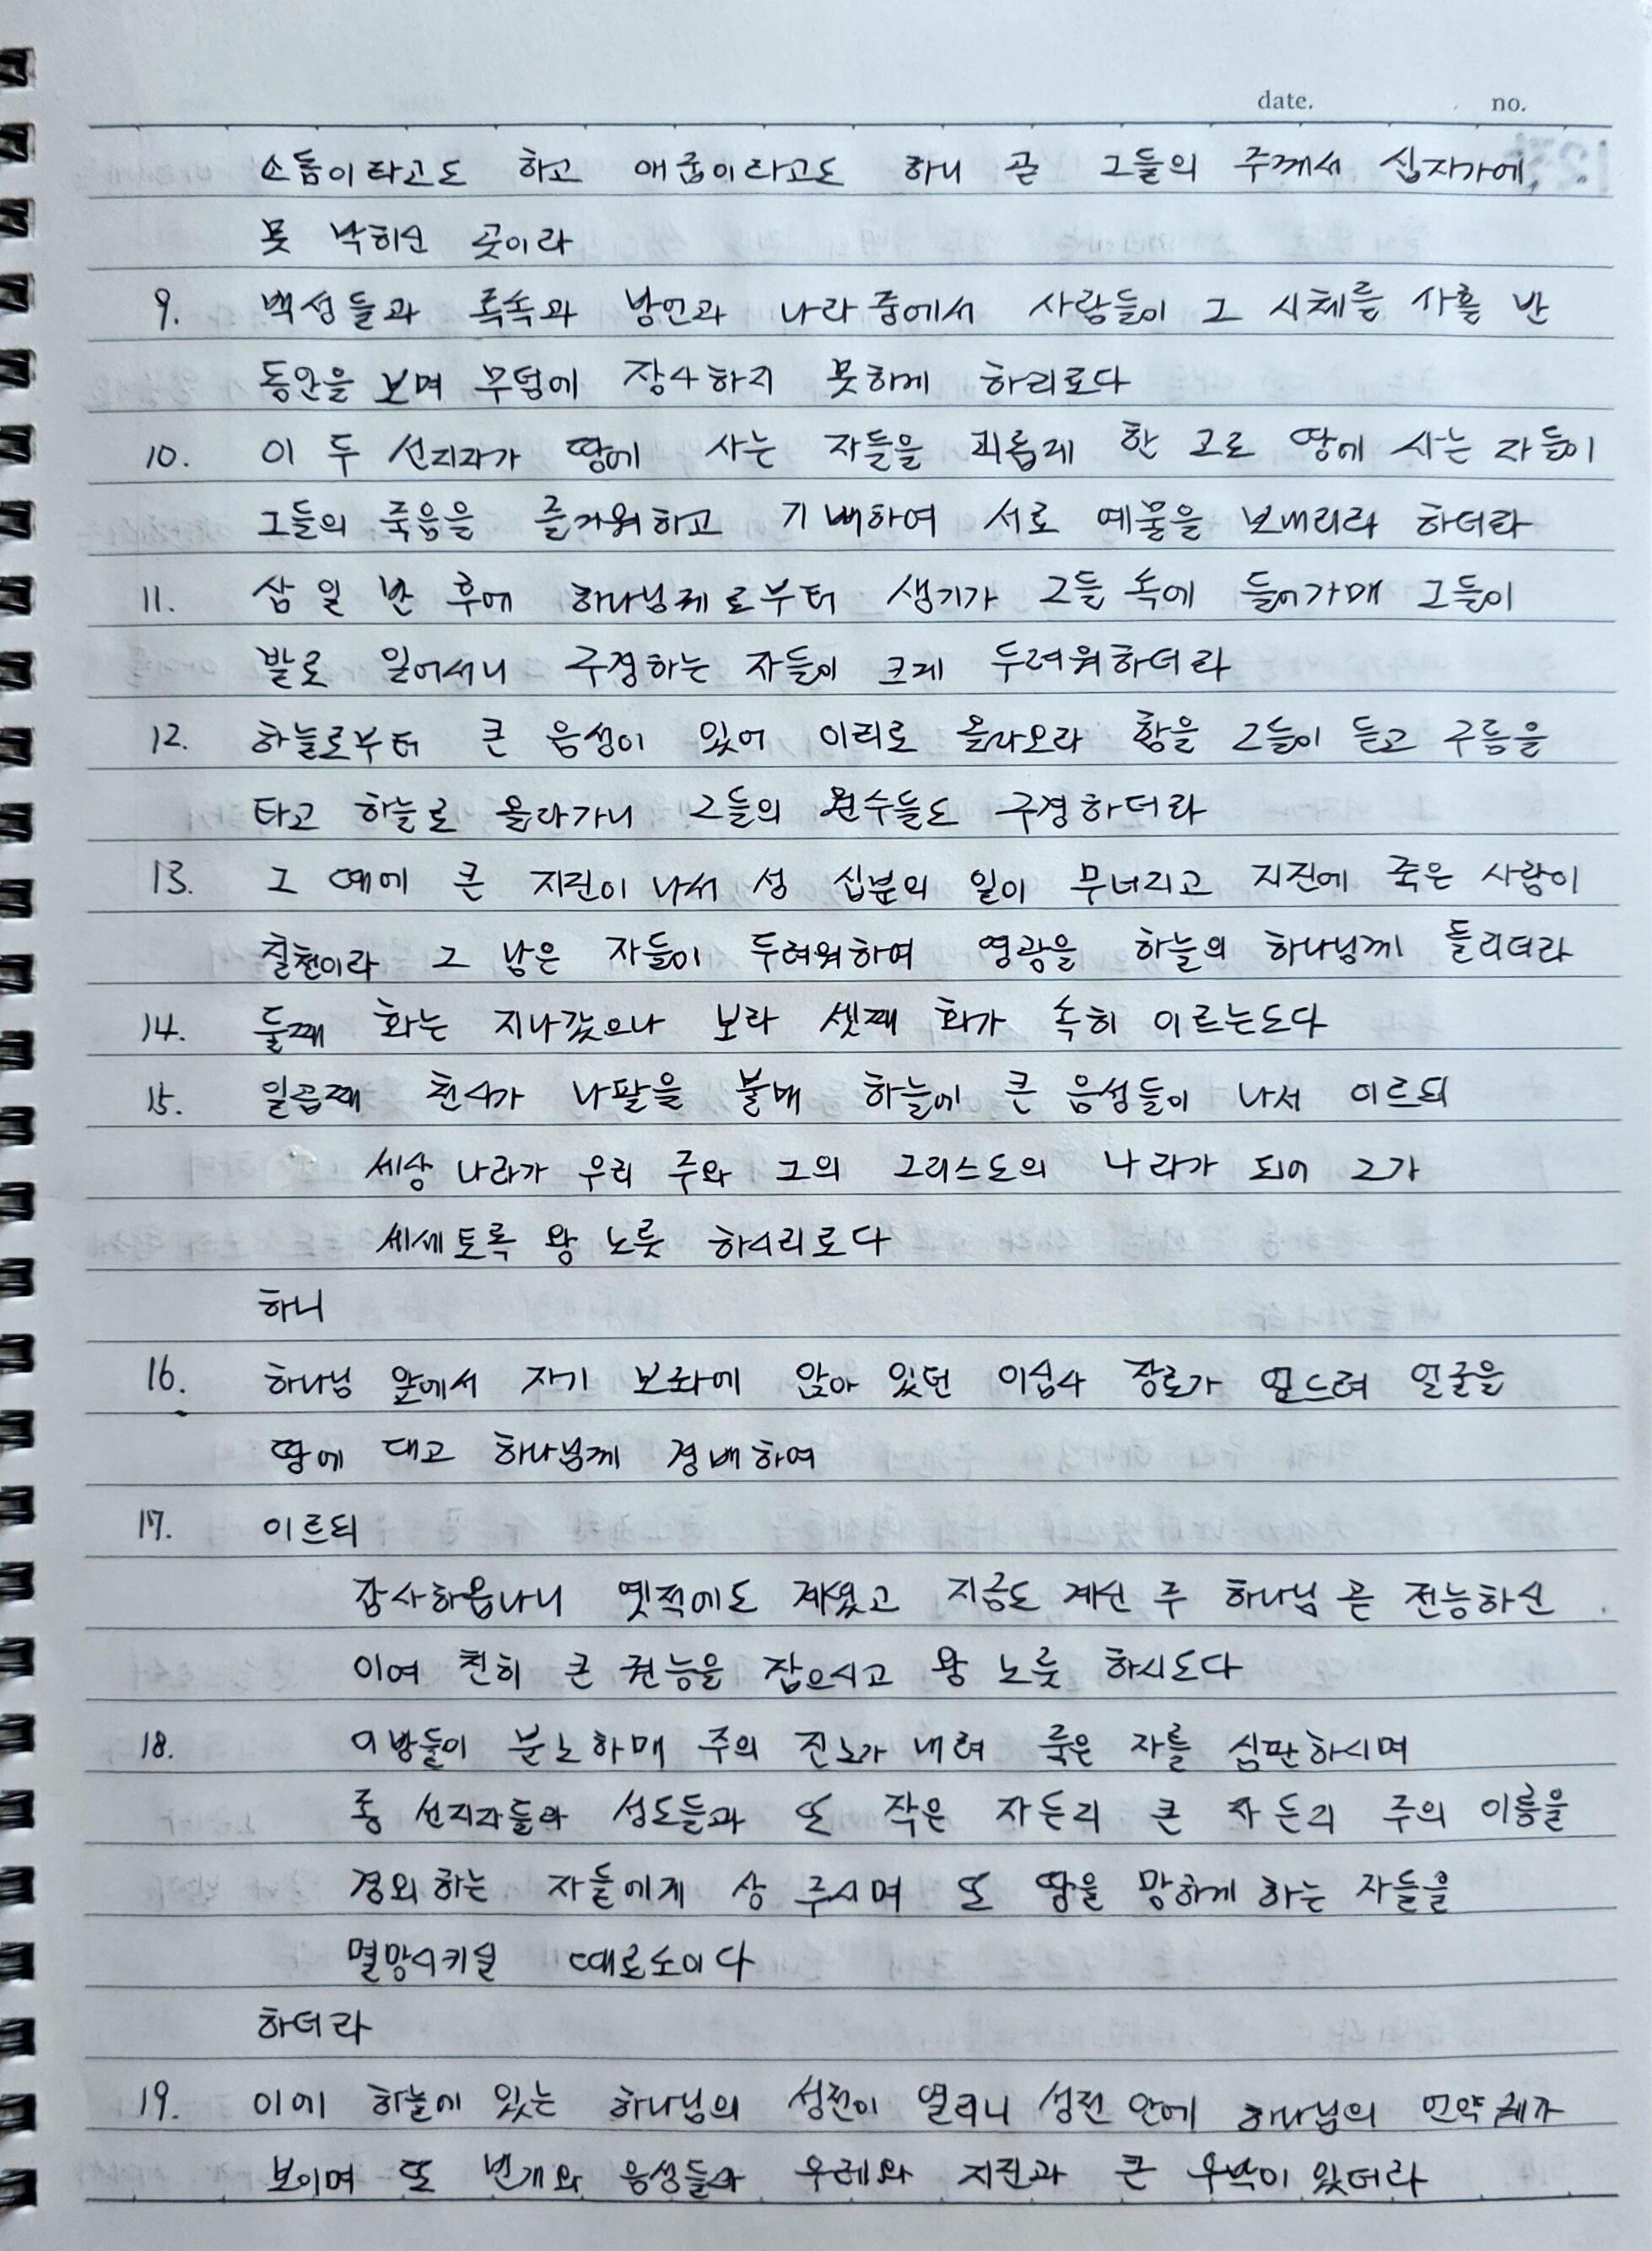 date. no.
소돔이라고도 하고 애굽이라고도 하니 곧 그들의 주께서 십자가에
못 박히신 곳이라
9. 백성들과 족속과 방언과 나라 중에서 사람들이 그 시체를 사흘 반
동안을 보며 무덤에 장사하지 못하게 하리로다
10. 이 두 선지자가 땅에 사는 자들을 괴롭게 한 고로 땅에 사는 자들이
그들의 죽음을 즐거워하고 기뻐하여 서로 예물을 보내리라 하더라
11. 삼 일 반 후에 하나님께로부터 생기가 그들 속에 들어가매 그들이
발로 일어서니 구경하는 자들이 크게 두려워하더라
12. 하늘로부터 큰 음성이 있어 이리로 올라오라 함을 그들이 듣고 구름을
타고 하늘로 올라가니 그들의 원수들도 구경하더라
13. 그 때에 큰 지진이 나서 성 십분의 일이 무너지고 지진에 죽은 사람이
칠천이라 그 남은 자들이 두려워하여 영광을 하늘의 하나님께 돌리더라
14. 둘째 화는 지나갔으나 보라 셋째 화가 속히 이르는도다
15. 일곱째 천사가 나팔을 불매 하늘에 큰 음성들이 나서 이르되
세상 나라가 우리 주와 그의 그리스도의 나라가 되어 그가
세세토록 왕 노릇 하시리로다
하니
16. 하나님 앞에서 자기 보좌에 앉아 있던 이십사 장로가 엎드려 얼굴을
땅에 대고 하나님께 경배하여
17. 이르되
감사하옵나니 옛적에도 계셨고 지금도 계신 주 하나님 곧 전능하신
이여 친히 큰 권능을 잡으시고 왕 노릇 하시도다
18. 이방들이 분노하매 주의 진노가 내려 죽은 자를 심판하시며
종 선지자들과 성도들과 또 작은 자든지 큰 자든지 주의 이름을
경외하는 자들에게 상 주시며 또 땅을 망하게 하는 자들을
멸망시키실 때로소이다
하더라
19. 이에 하늘에 있는 하나님의 성전이 열리니 성전 안에 하나님의 언약궤가
보이며 또 번개와 음성들과 우레와 지진과 큰 우박이 있더라